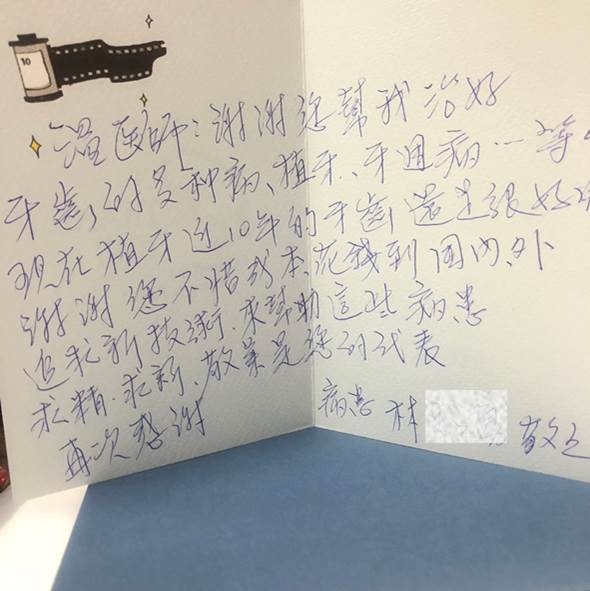 10
溫医師:谢谢您幫我治好
牙齒,的多种病、植牙、牙週病…等
現在植牙近10年的牙齒還是很好
谢谢您不惜成本,花錢到国内外
追求新技術.來幫助這些病患
求精.求新.敬業是您的代表
再次感谢
病患 林 敬上